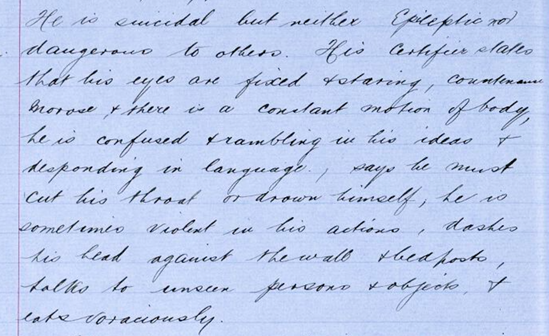 He is suicidal but neither Epileptic nor
dangerous to others. His Certifier states
that his eyes are fixed & staring, countenance
morose, & there is a constant motion of body,
he is confused & rambling in his ideas &
desponding in language, says he must
cut his throat or drown himself, he is
sometimes violent in his actions, dashes
his head against the wall & bedposts,
talks to unseen persons & objects, &
eats voraciously.